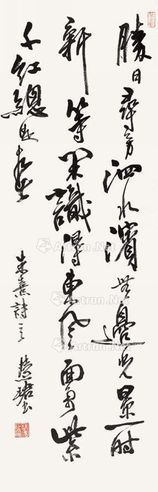 勝日尋芳泗水濱無邊光景一時
新等閒識得東風面萬紫
千紅總是春
朱熹詩
慧珺
Artron.Net